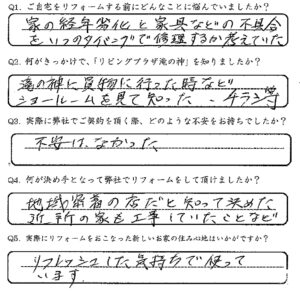 Q1. ご自宅をリフォームする前にどんなことに悩んでいましたか？
家の経年劣化と家具などの不具合
をいつのタイミングで修理するか考えていた
Q2. 何がきっかけで、「リビングプラザ滝の神」を知りましたか？
滝の神に買物に行った時など
ショールームを見て知った、チラシ等
Q3. 実際に弊社でご契約を頂く際、どのような不安をお持ちでしたか？
不安は、なかった
Q4. 何が決め手となって弊社でリフォームをして頂けましたか？
地域密着の店だと知って決めた
近所の家も工事していたことなど
Q5. 実際にリフォームをおこなった新しいお家の住み心地はいかがですか？
リフレッシュした気持ちで使って
います